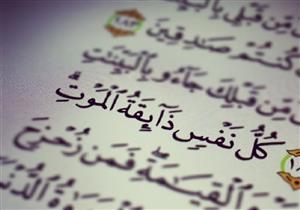 مِّن قَبْلِي بِٱلْبَيِّنَـٰتِ
كُنتُمْ صَـٰدِقِينَ ١٨٣
مِّن قَبْلِكَ جَآءُو بِٱلْبَيِّنَـٰتِ
كُلُّ نَفْسٍ ذَآئِقَةُ ٱلْمَوْتِ
ٱلْقِيَـٰمَةِ فَمَن زُحْزِحَ